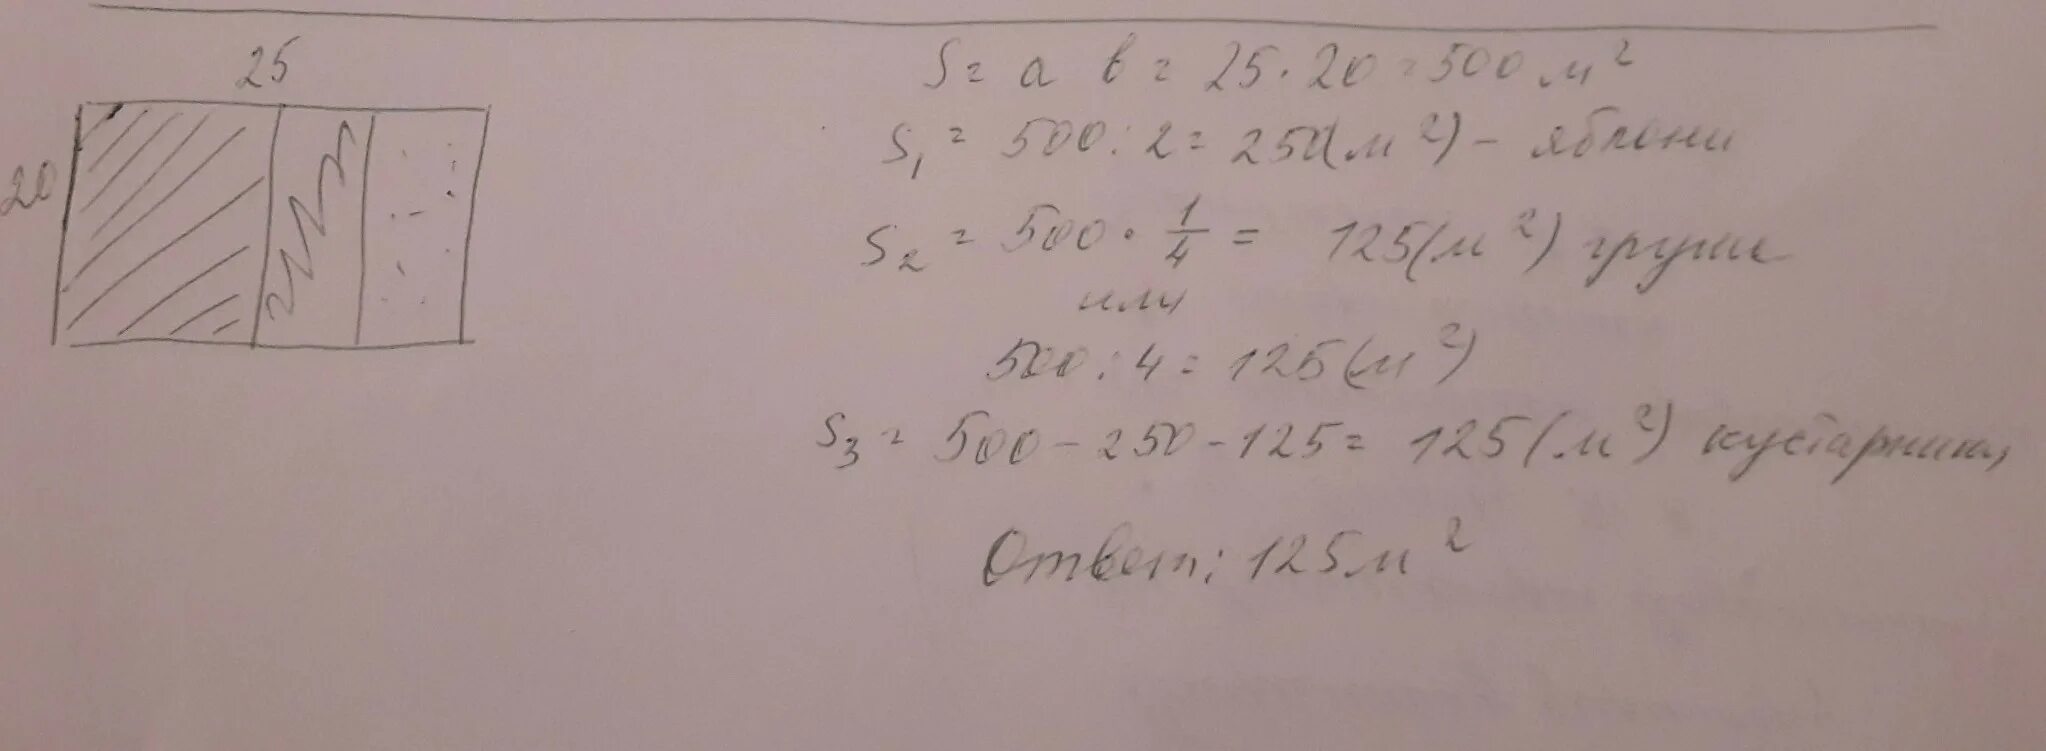 25
20
S = a b = 25 · 20 = 500 м²
S₁ = 500 : 2 = 250(м²) - яблони
S₂ = 500 · 1/4 = 125(м²) груши
или
500 : 4 = 125(м²)
S₃ = 500 - 250 - 125 = 125(м²) кустарники
Ответ: 125м²